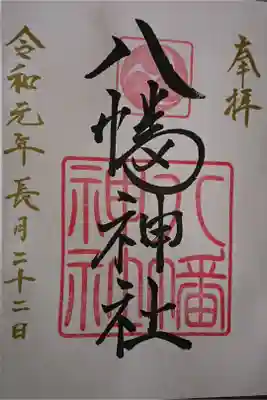 奉拝
八幡神社
八幡
神社
令和元年長月二十二日